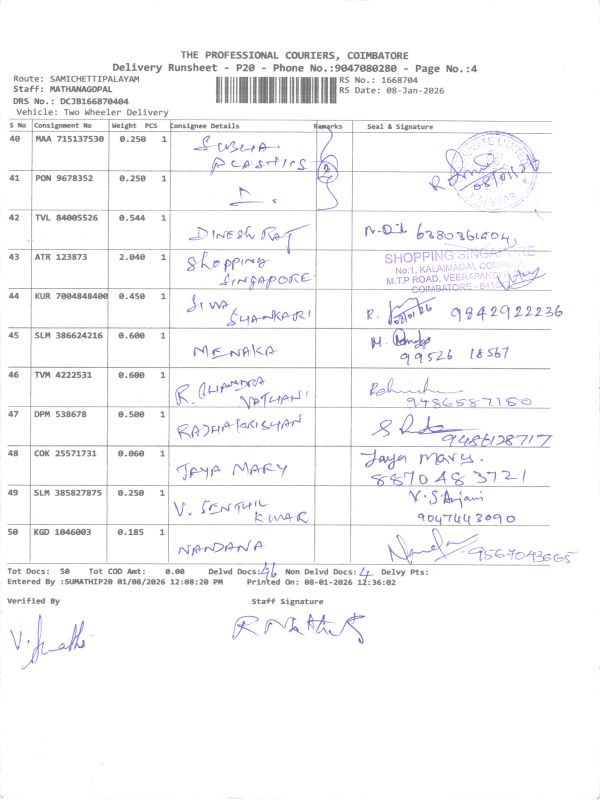 THE PROFESSIONAL COURIERS, COIMBATORE
Delivery Runsheet - P20 - Phone No.:9047080280 - Page No.:4
Route: SAMICHETTIPALAYAM
Staff: MATHANAGOPAL
DRS No.: DCJB166870404
Vehicle: Two Wheeler Delivery
RS No.: 1668704
RS Date: 08-Jan-2026
S No Consignment No Weight PCS Consignee Details Remarks Seal & Signature
40 MAA 715137530 0.250 1 PLASTICS
41 PON 9678352 0.250 1
42 TVL 84005526 0.544 1 DINESH RAJ 6380361404
43 ATR 123873 2.040 1 Shopping SINGAPORE
SHOPPING SINGAPORE
No:1, KALAIMAGAL
M.T.P ROAD, VEERAPANDI
COIMBATORE - 6410
44 KUR 7004848400 0.450 1 SIVA SHANKARI 9842922236
45 SLM 386624216 0.600 1 MENAKA 99526 18567
46 TVM 4222531 0.600 1 R. CHANDRA VATHANI 9486587150
47 DPM 538678 0.500 1 RADHAKRISHAN 9486128717
48 COK 25571731 0.060 1 JAYA MARY Jaya Mary. 8870483721
49 SLM 385827875 0.250 1 V. SENTHIL KUMAR V. S Anjani 9047443090
50 KGD 1046003 0.185 1 NANDANA 9567043665
Tot Docs: 50 Tot COD Amt: 0.00 Delvd Docs: 46 Non Delvd Docs: 4 Delvy Pts:
Entered By :SUMATHIP20 01/08/2026 12:08:20 PM Printed On: 08-01-2026 12:36:02
Verified By Staff Signature